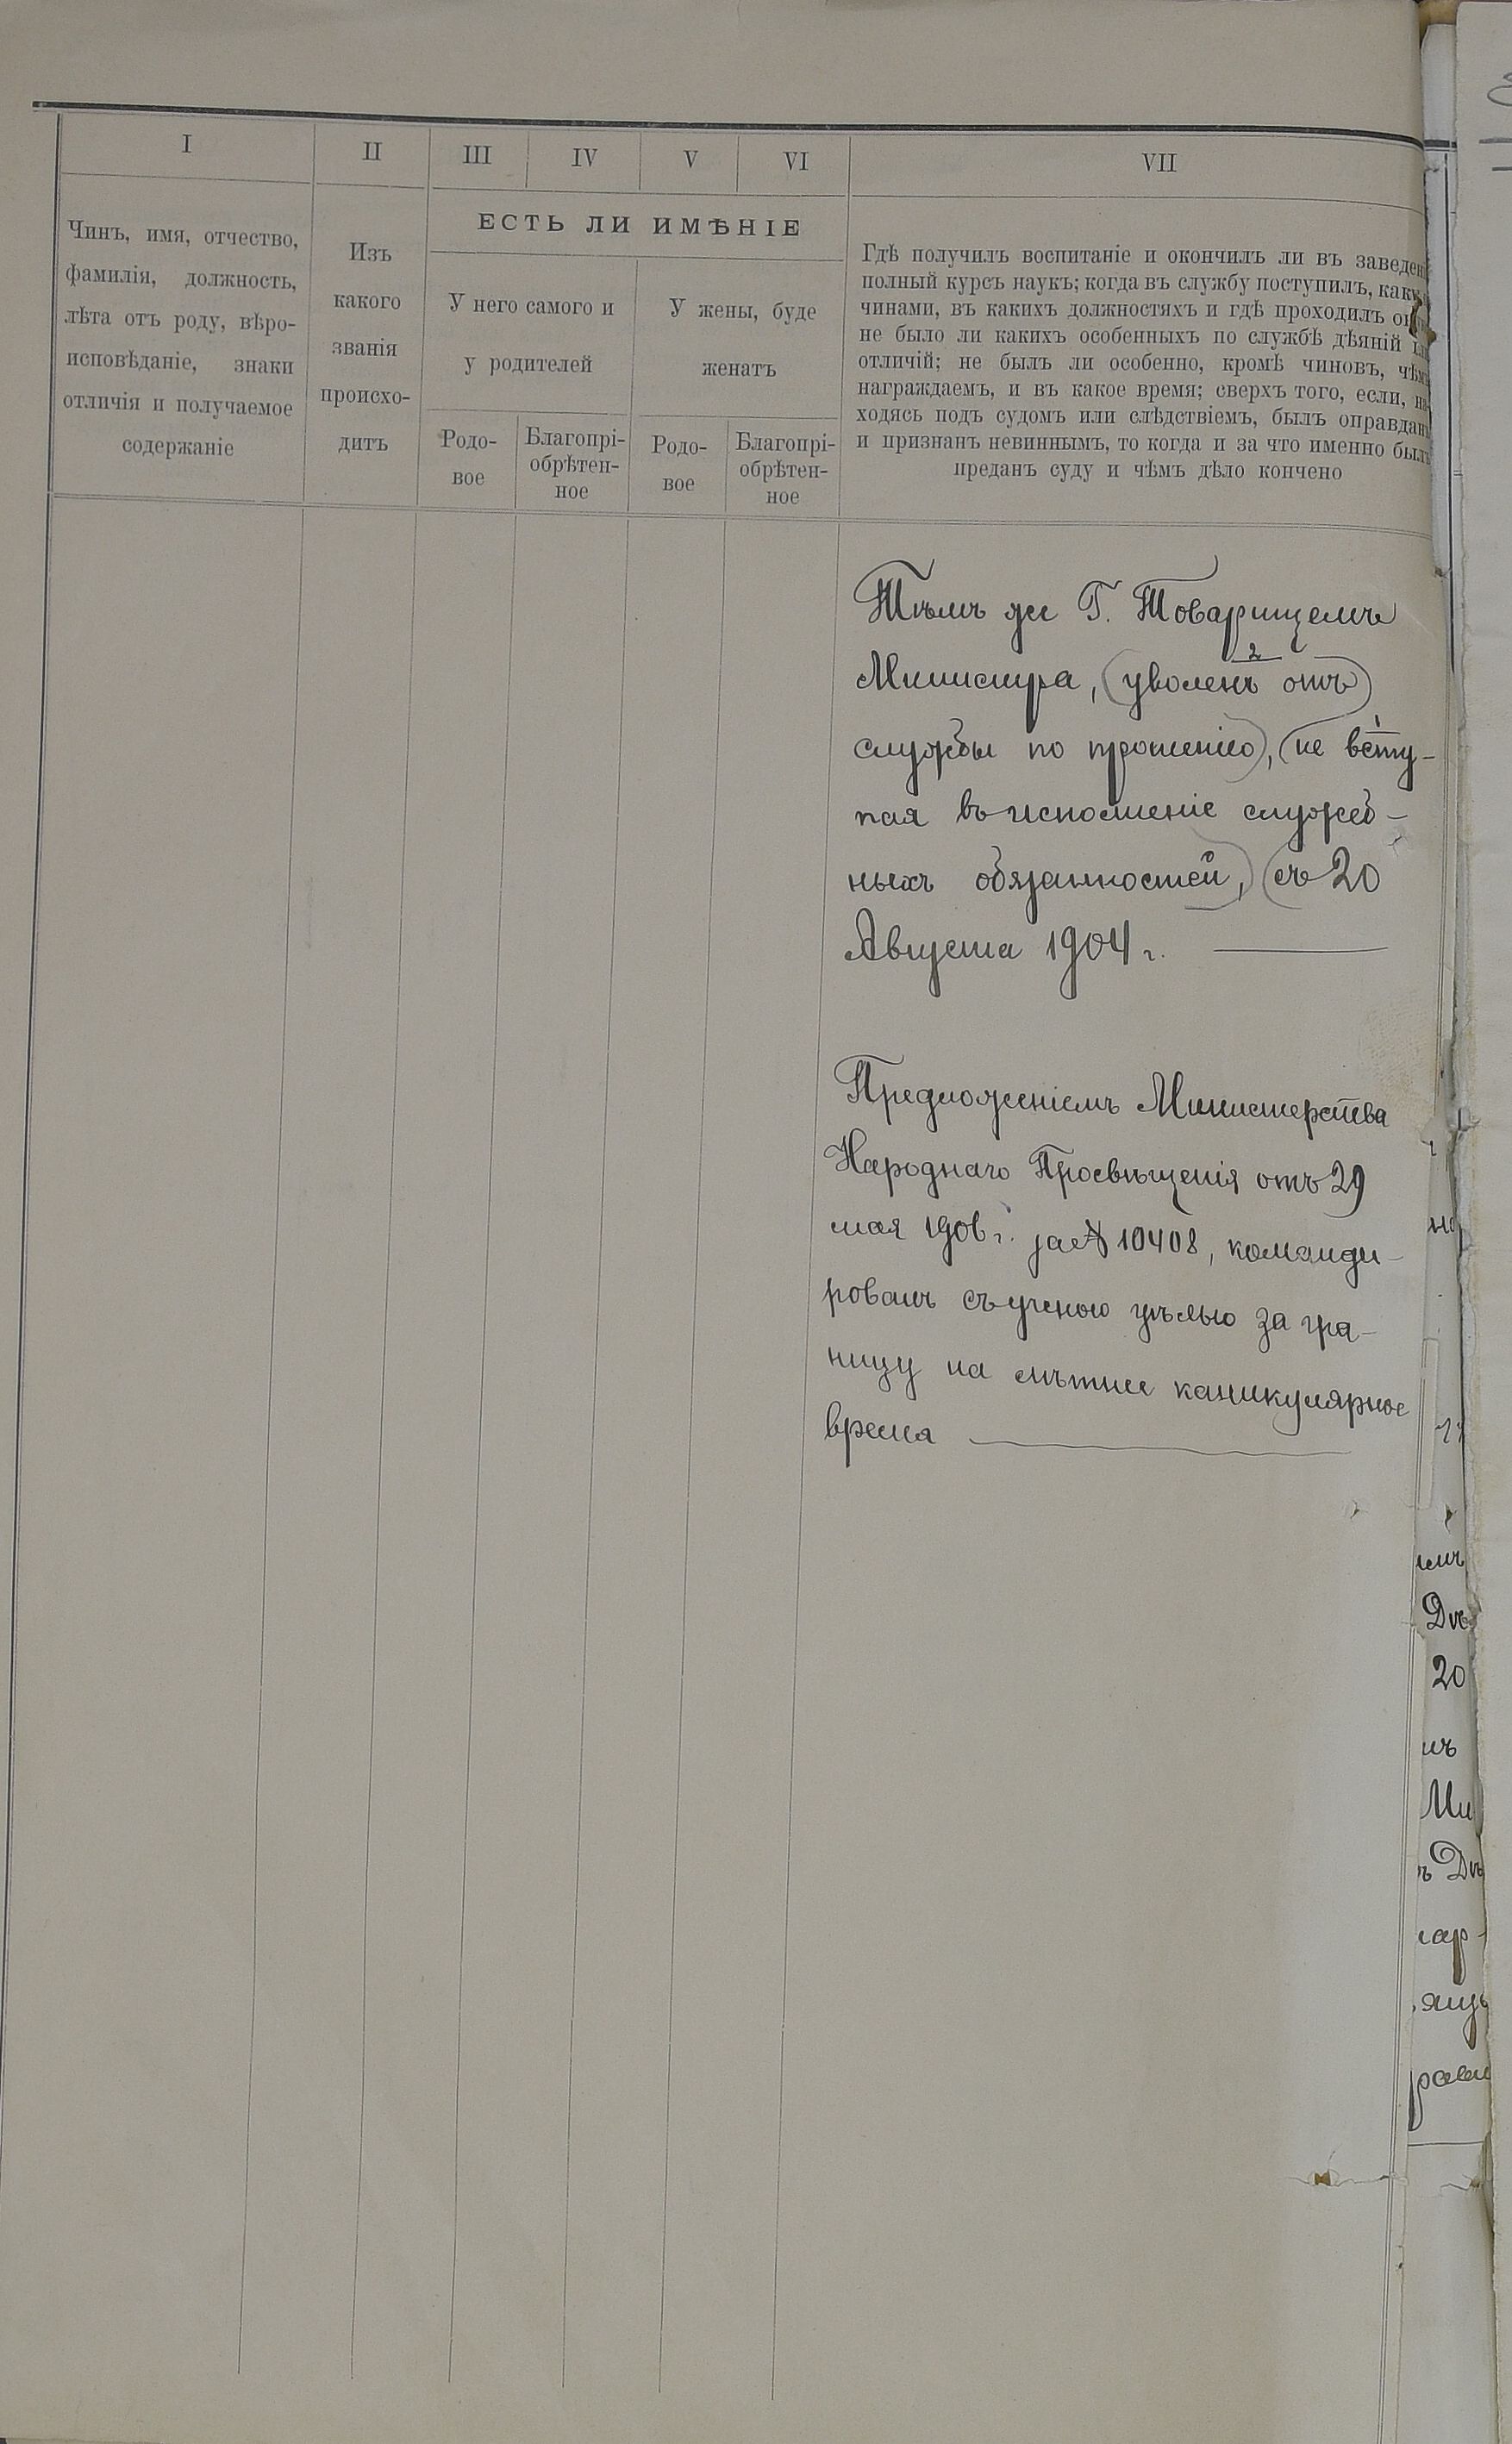 I
II
III
IV
V
VI
VII
Чинъ, имя, отчество,
фамилія, должность,
лѣта отъ роду, вѣро-
исповѣданіе, знаки
отличія и получаемое
содержаніе
Изъ
какого
званія
происхо-
дитъ
ЕСТЬ ЛИ ИМѢНІЕ
У него самого и
у родителей
У жены, буде
женатъ
Родо-
вое
Благопрі-
обрѣтен-
ное
Родо-
вое
Благопрі-
обрѣтен-
ное
Гдѣ получилъ воспитаніе и окончилъ ли въ заведен
полный курсъ наукъ; когда въ службу поступилъ, как
чинами, въ какихъ должностяхъ и гдѣ проходилъ
не было ли какихъ особенныхъ по службѣ дѣяній
отличій; не былъ ли особенно, кромѣ чиновъ, чѣмъ
награждаемъ, и въ какое время; сверхъ того, если, на-
ходясь подъ судомъ или слѣдствіемъ, былъ оправданъ
и признанъ невиннымъ, то когда и за что именно былъ
преданъ суду и чѣмъ дѣло кончено
Тѣмъ же Г. Товарищемъ
2
Министра, (уволенъ отъ
1
службы по прошенію), (не всту-
пая въ исполненіе служеб-
ныхъ обязанностей,) (съ 20
Августа 1904 г.
Предложеніемъ Министерства
Народнаго Просвѣщенія отъ 29
мая 1906 г. за № 10408, команди-
рованъ съ ученою цѣлью за гра-
ницу на лѣтнее каникулярное
время
Дѣ
20
Ми
ъ Дѣ